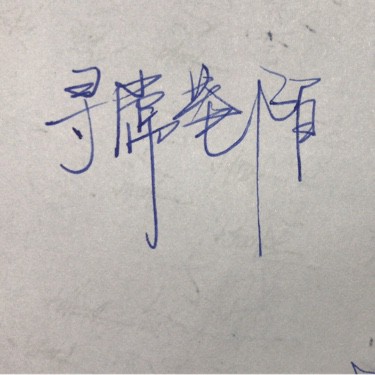 寻常巷陌